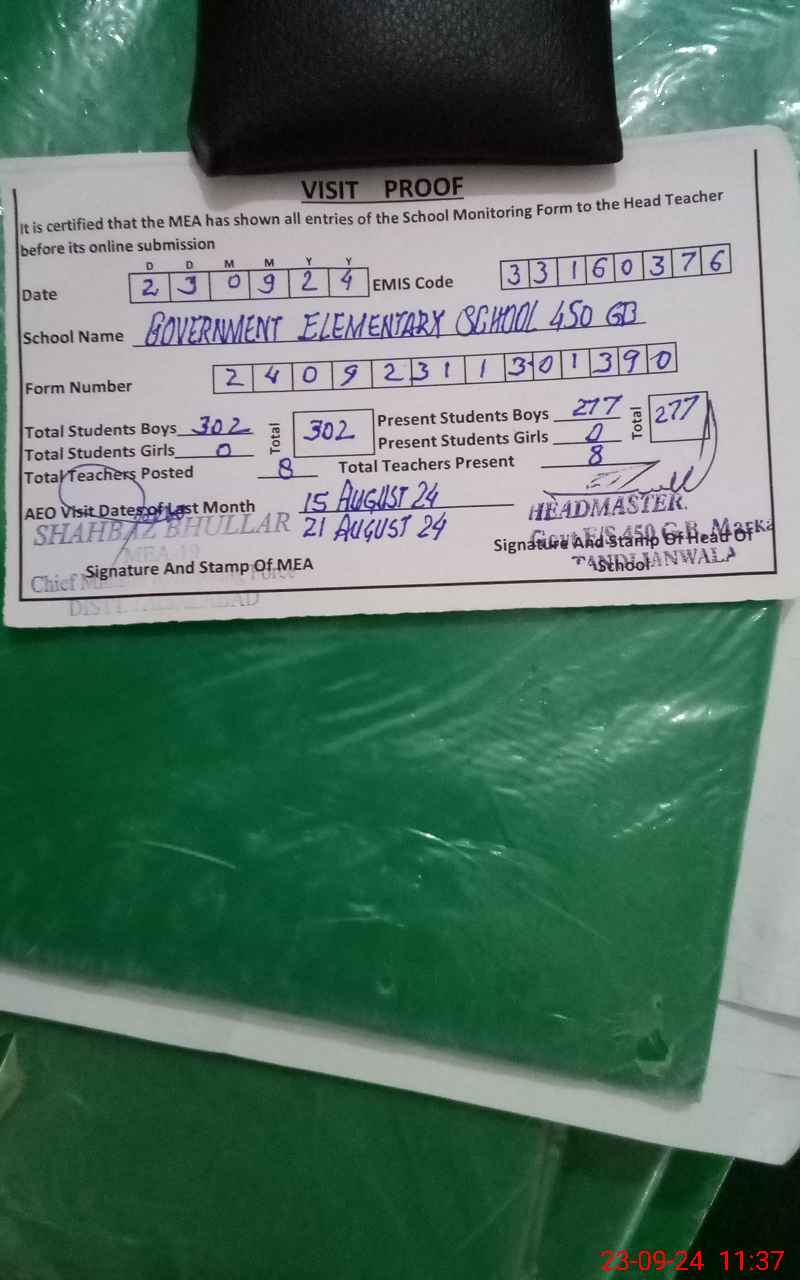 VISIT PROOF
It is certified that the MEA has shown all entries of the School Monitoring Form to the Head Teacher
before its online submission
D D M M Y Y
Date 2 3 0 9 2 4 EMIS Code 3 3 1 6 0 3 7 6
School Name GOVERNMENT ELEMENTARY SCHOOL 450 GB
Form Number 2 4 0 9 2 3 1 1 3 0 1 3 9 0
Total Students Boys 302 Total 302 Present Students Boys 277 Total 277
Total Students Girls 0 Present Students Girls 0
Total Teachers Posted 8 Total Teachers Present 8
AEO Visit Dates of Last Month 15 AUGUST 24
21 AUGUST 24
SHAHBAZ BHULLAR
MEA-19
Chief Force
DISTT
Signature And Stamp Of MEA
HEADMASTER.
Govt E/S 450 G.B. Marka
TANDLIANWALA
Signature And Stamp Of Head Of
School
23-09-24 11:37